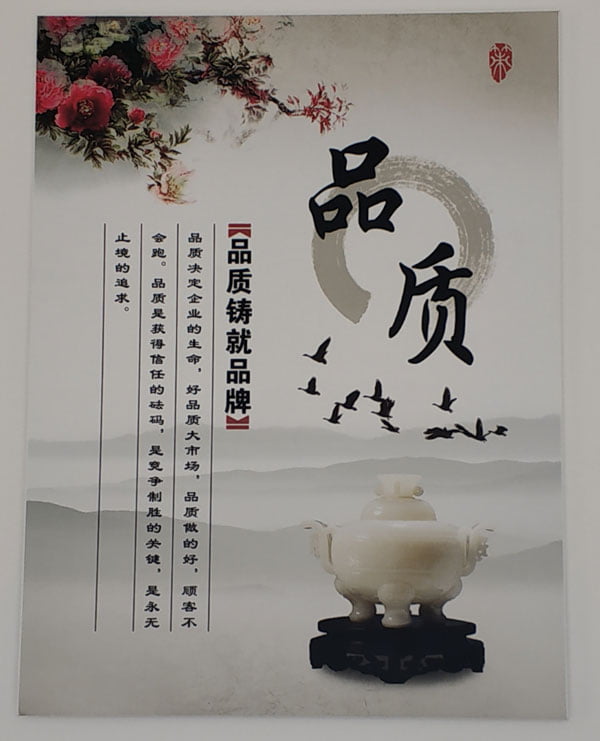 品质
【品质铸就品牌】
品质决定企业的生命，好品质大市场，品质做的好，顾客不
会跑。品质是获得信任的砝码，是竞争制胜的关键，是永无
止境的追求。